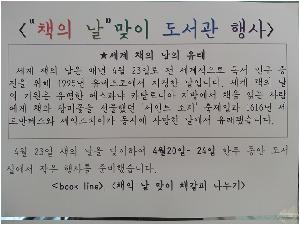 <"책의 날"맞이 도서관 행사>
★세계 책의 날의 유래
세계 책의 날은 매년 4월 23일로 전 세계적으로 독서 인구 증
진을 위해 1995년 유네스코에서 지정한 날입니다. 세계 책의 날
의 기원은 유명한 에스파냐 카탈루니아 지방에서 책을 읽는 사람
에게 책과 장미꽃을 선물했던 '세인트 조지' 축제일과 1616년 세
르반테스와 셰익스피어가 동시에 사망한 날에서 유래됐습니다.
4월 23일 책의 날을 맞이하여 4월20일- 24일 한주 동안 도서
실에서 작은 행사를 준비했습니다.
<book line> <책의 날 맞이 책갈피 나누기>